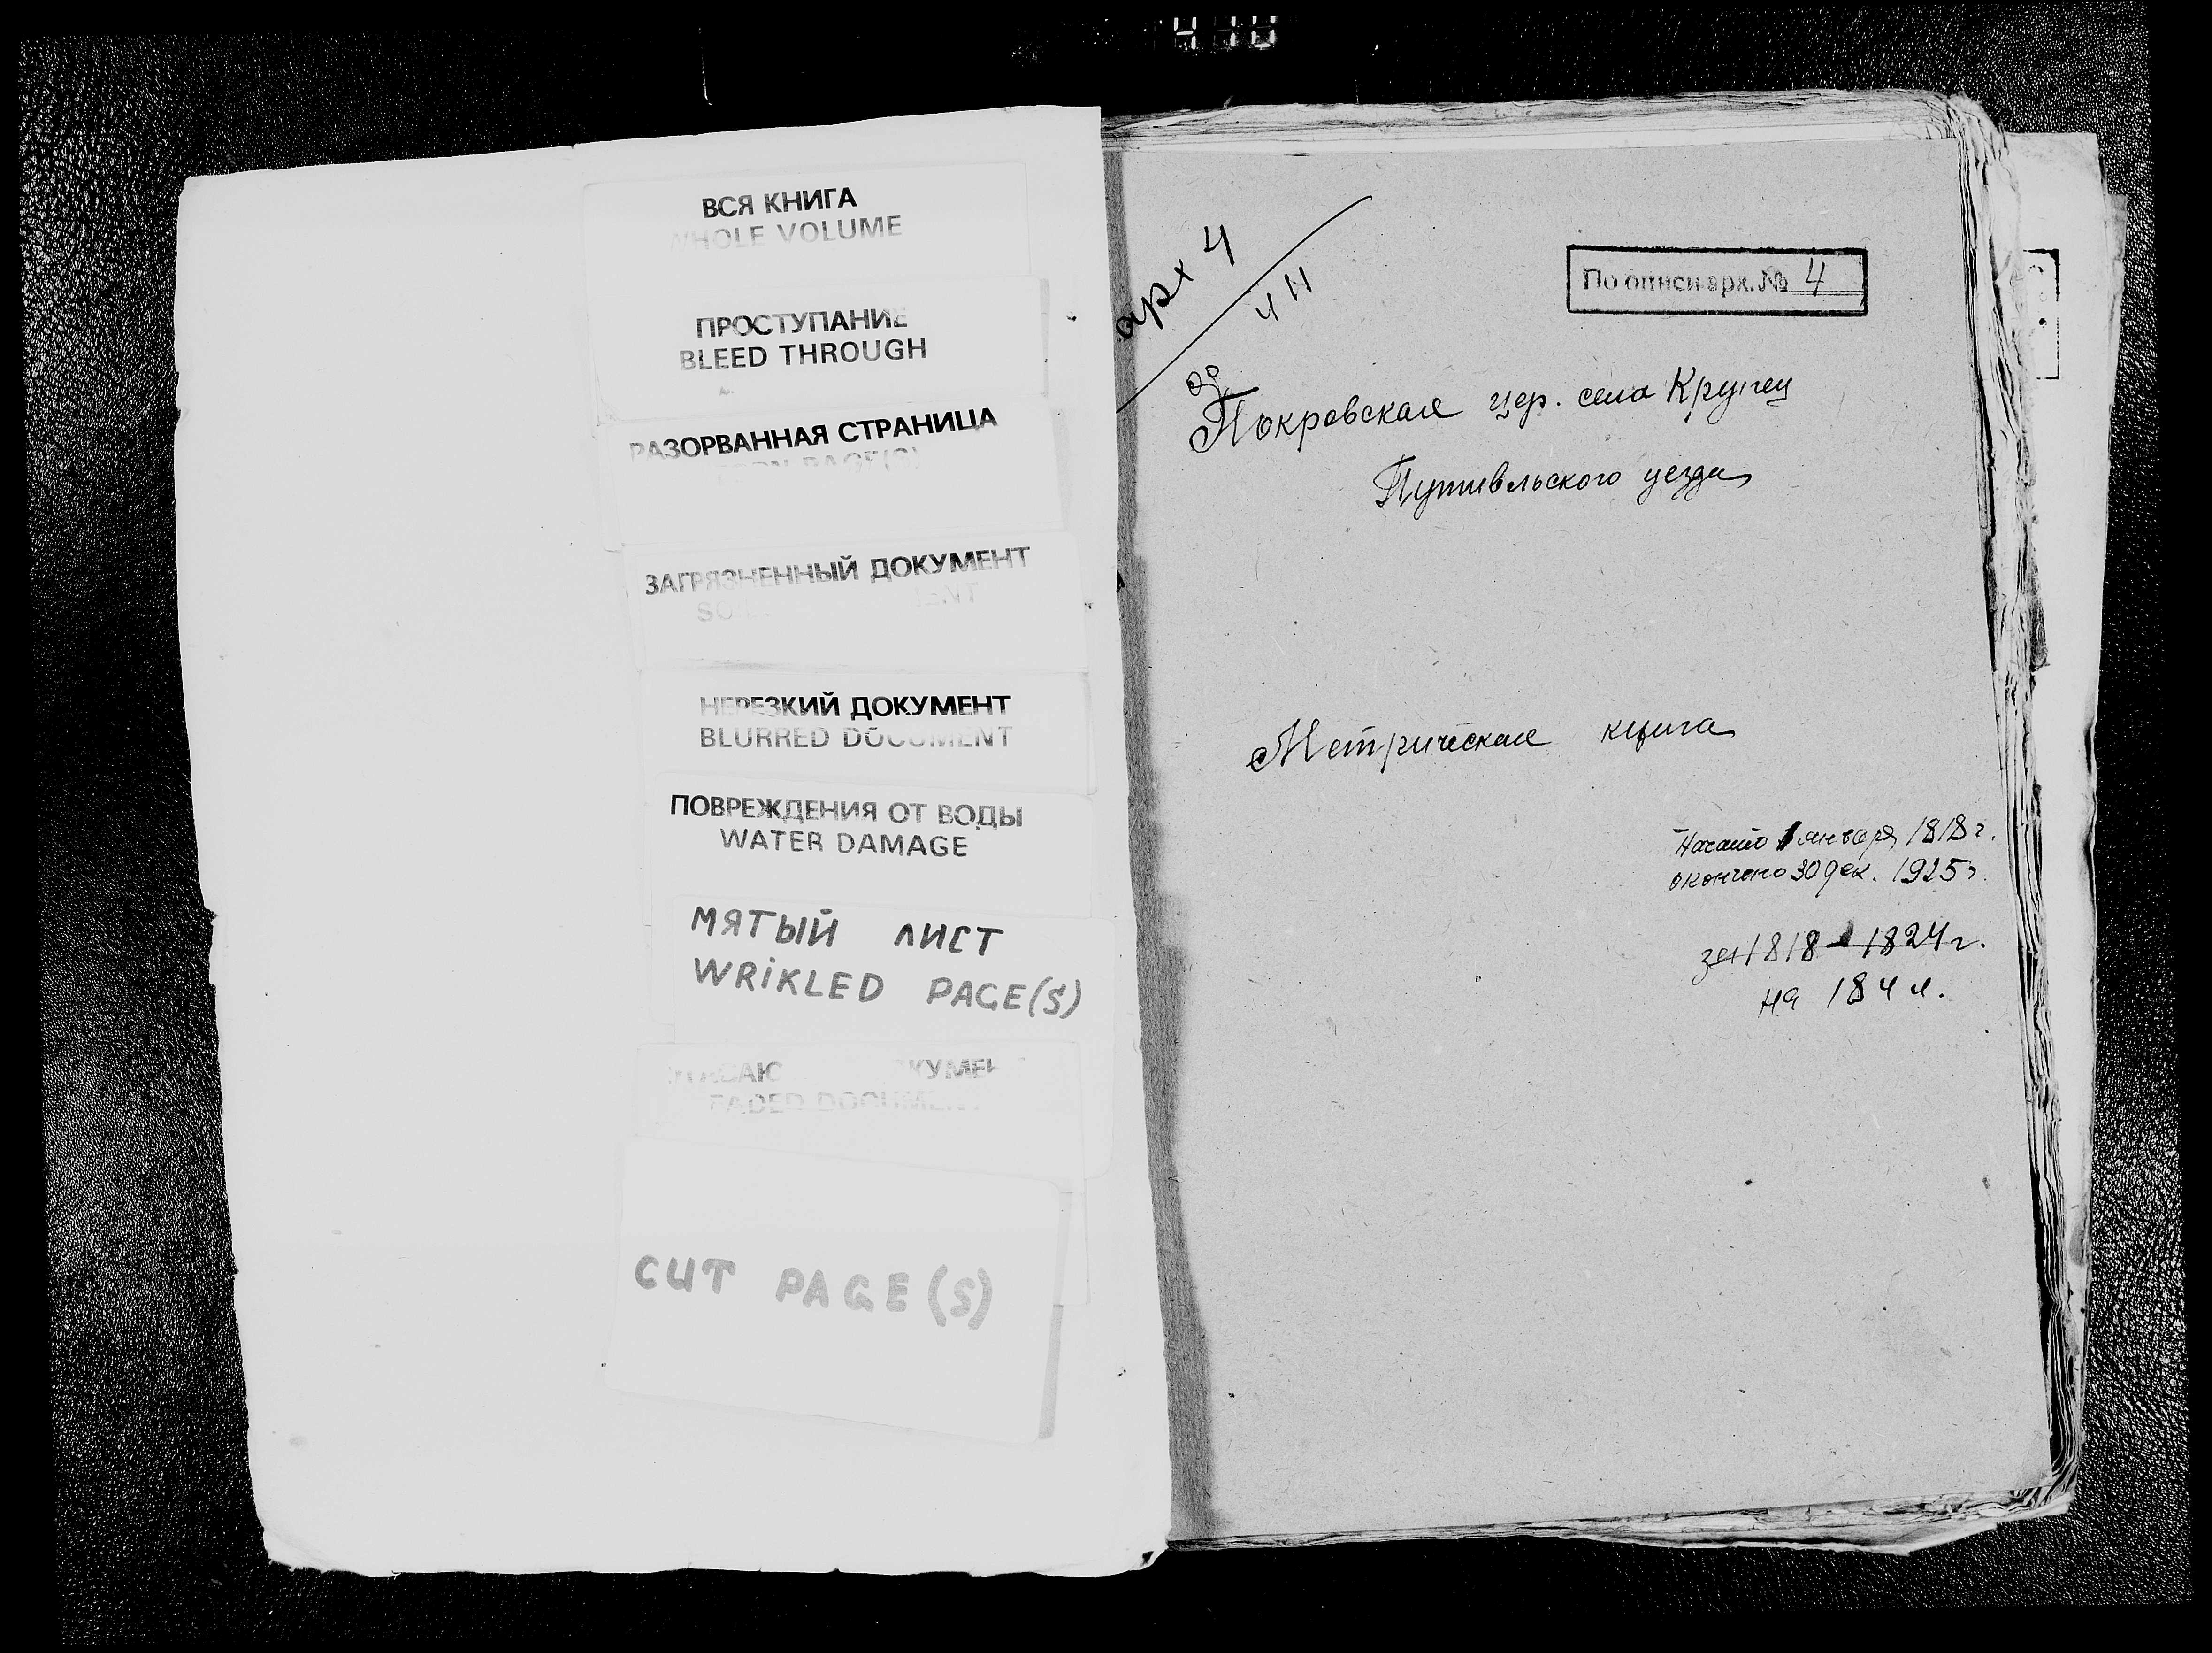 410
ВСЯ КНИГА
WHOLE VOLUME
ПРОСТУПАНИЕ
BLEED THROUGH
РАЗОРВАННАЯ СТРАНИЦА
ЗАГРЯЗНЕННЫЙ ДОКУМЕНТ
НЕРЕЗКИЙ ДОКУМЕНТ
BLURRED DOCUMENT
ПОВРЕЖДЕНИЯ ОТ ВОДЫ
WATER DAMAGE
МЯТЫЙ ЛИСТ
WRiKLED PAGE(S)
FADED DOCUMENT
CUT PAGE(S)
арх 4
По описи арх. № 4
Покровская цер. села Крупец
Путивльского уезда
Метрическая книга
Начато 1 января 1818 г.
окончено 30 дек. 1925 г.
за 1818 – 1824 г.
на 184 л.